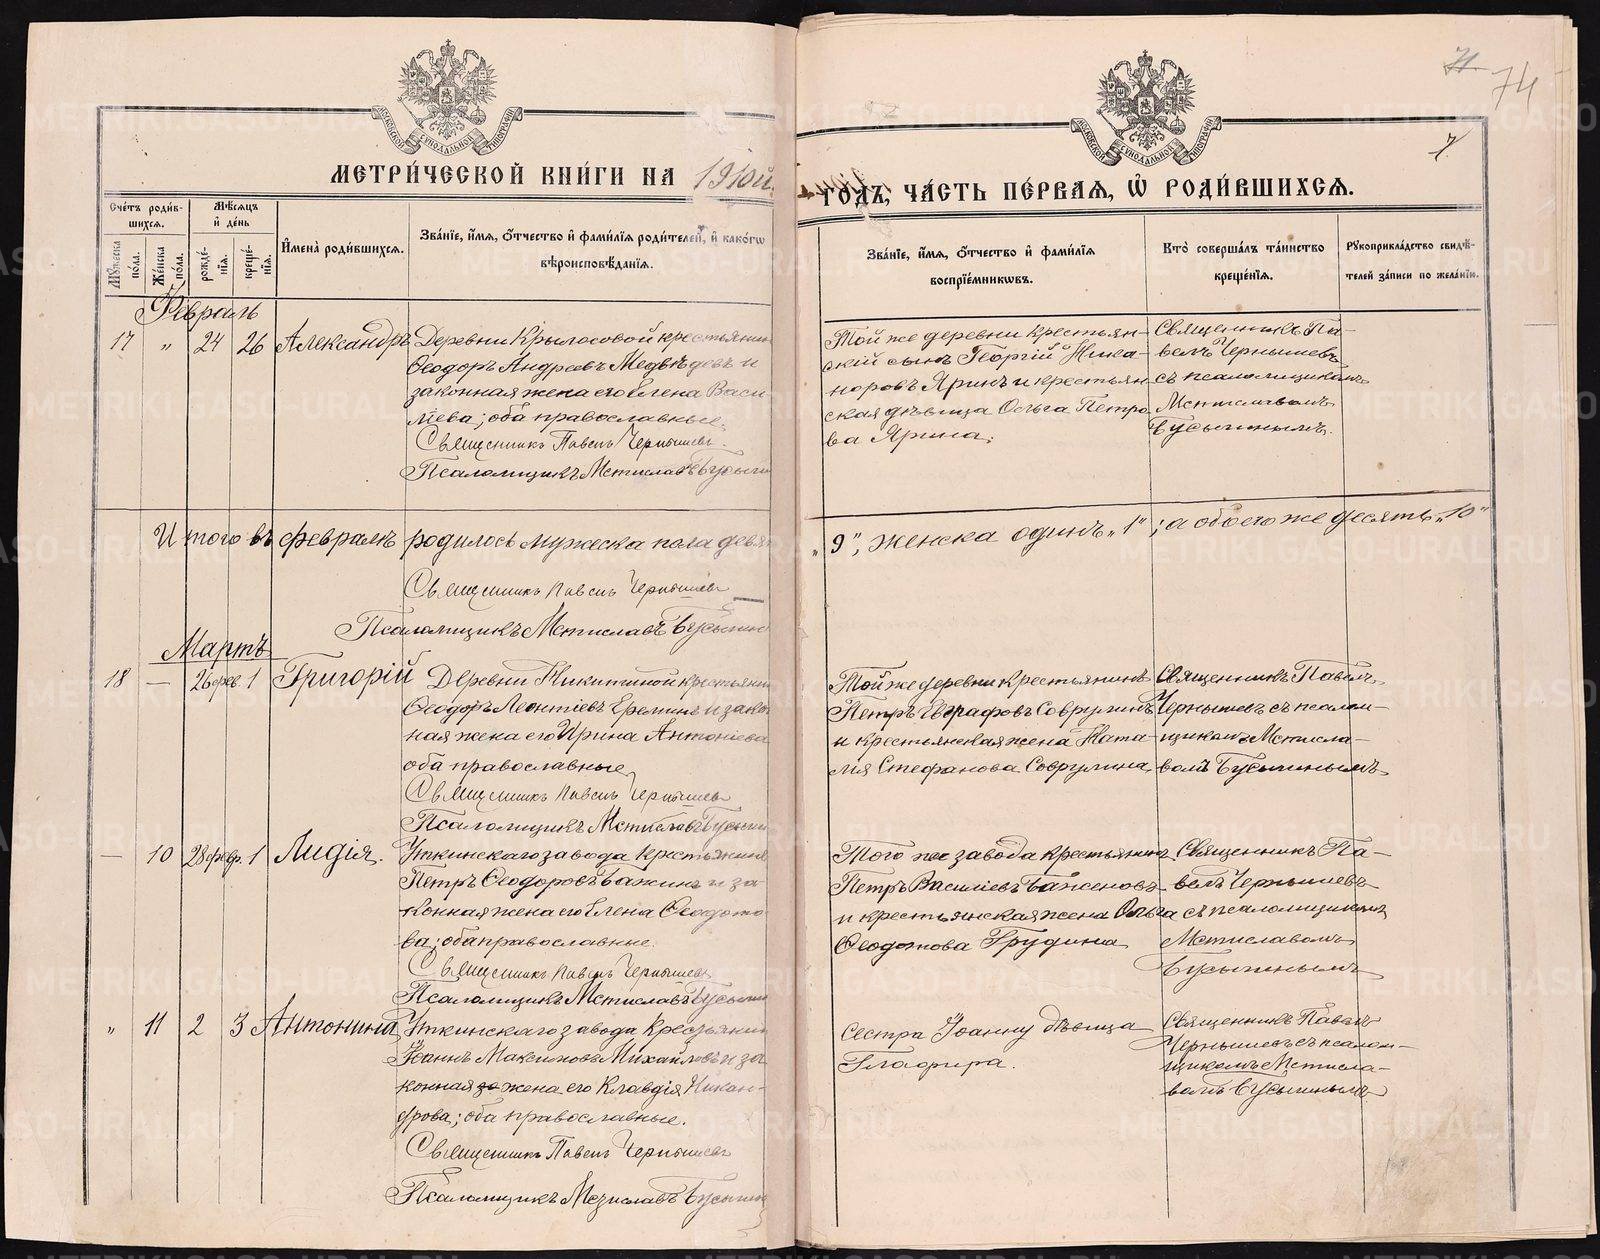 МЕТРИ́ЧЕСКОЙ КНИ́ГИ НА 1910й
ГОДЪ, ЧА́СТЬ ПЕ́РВАЯ, Ѡ҆ РОДИ́ВШИХСѦ.
71 74
7
Сче́тъ роди́вшихсѧ.
Мꙋ́жеска по́ла.
Же́нска по́ла.
Мѣ́сѧцъ и҆ де́нь
рожде́нїѧ.
креще́нїѧ.
И҆мена̀ роди́вшихсѧ.
Зва́нїе, и҆́мѧ, ѻ҆́тчество и҆ фами́лїѧ роди́телей, и҆ како́гѡ вѣроисповѣ́данїѧ.
Зва́нїе, и҆́мѧ, ѻ҆́тчество и҆ фами́лїѧ воспрїе́мникѡвъ.
Кто̀ соверша́лъ та́инство креще́нїѧ.
Рꙋкоприкла́дство свидѣ́телей за́писи по жела́нїю.
Февраль
17 „ 24 26 Александръ
Деревни Крылосовой крестьянин
Ѳеодоръ Андреевъ Медвѣдевъ и
законная жена его Елена Васи-
лiева; оба православные.
Священникъ Павелъ Чернышевъ
Псаломщикъ Мстиславъ Бусыгин
Той же деревни крестьян-
скiй сынъ Георгiй Ника-
норовъ Яринъ и крестьян-
ская дѣвица Ольга Петро
ва Ярина.
Священникъ Па-
велъ Чернышевъ
съ псаломщикомъ
Мстиславомъ
Бусыгинымъ.
Итого въ февралѣ родилось мужеска пола девя
„9", женска одинъ „1"; а обоего же десять „10"
Священникъ Павелъ Чернышевъ
Псаломщикъ Мстиславъ Бусыгин
Мартъ
18 — 26 фев. 1 Григорiй
Деревни Никитиной крестьянин
Ѳеодоръ Леонтiевъ Ереминъ и закон
ная жена его Ирина Антонiева
оба православные
Священникъ Павелъ Чернышевъ
Псаломщикъ Мстиславъ Бусыгин
Той же деревни крестьянинъ
Петръ Евграфовъ Соврулинъ
и крестьянская жена Ната-
лiя Стефанова Соврулина
Священникъ Павелъ
Чернышевъ съ псалом-
щикомъ Мстисла-
вомъ Бусыгинымъ
— 10 28 февр. 1 Лидiя.
Уткинскаго завода крестьянин
Петръ Ѳеодоровъ Бажинъ и за-
конная жена его Елена Ѳеодото
ва; оба православные.
Священникъ Павелъ Чернышевъ
Псаломщикъ Мстиславъ Бусыгин
Того же завода крестьянинъ
Петръ Василiевъ Баженовъ
и крестьянская жена Ольга
Ѳеодотова Грудина
Священникъ Па-
велъ Чернышевъ
съ псаломщикомъ
Мстиславомъ
Бусыгинымъ
„ 11 2 3 Антонина
Уткинскаго завода крестьянин
Iоаннъ Максимовъ Михайловъ и за
конная жена его Клавдiя Никан-
дрова; оба православные.
Священникъ Павелъ Чернышевъ
Псаломщикъ Мстиславъ Бусыгин
Сестра Iоанну дѣвица
Глафира.
Священникъ Павелъ
Чернышевъ съ псалом-
щикомъ Мстисла-
вомъ Бусыгинымъ
METRIKI.GASO-URAL.RU